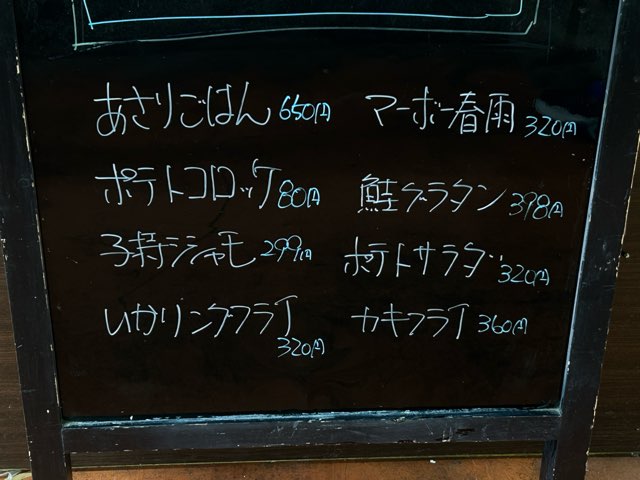 あさりごはん 650円
ポテトコロッケ 80円
子持シシャモ 299円
いかリングフライ
320円
マーボー春雨 320円
鮭グラタン 398円
ポテトサラダ 320円
カキフライ 360円